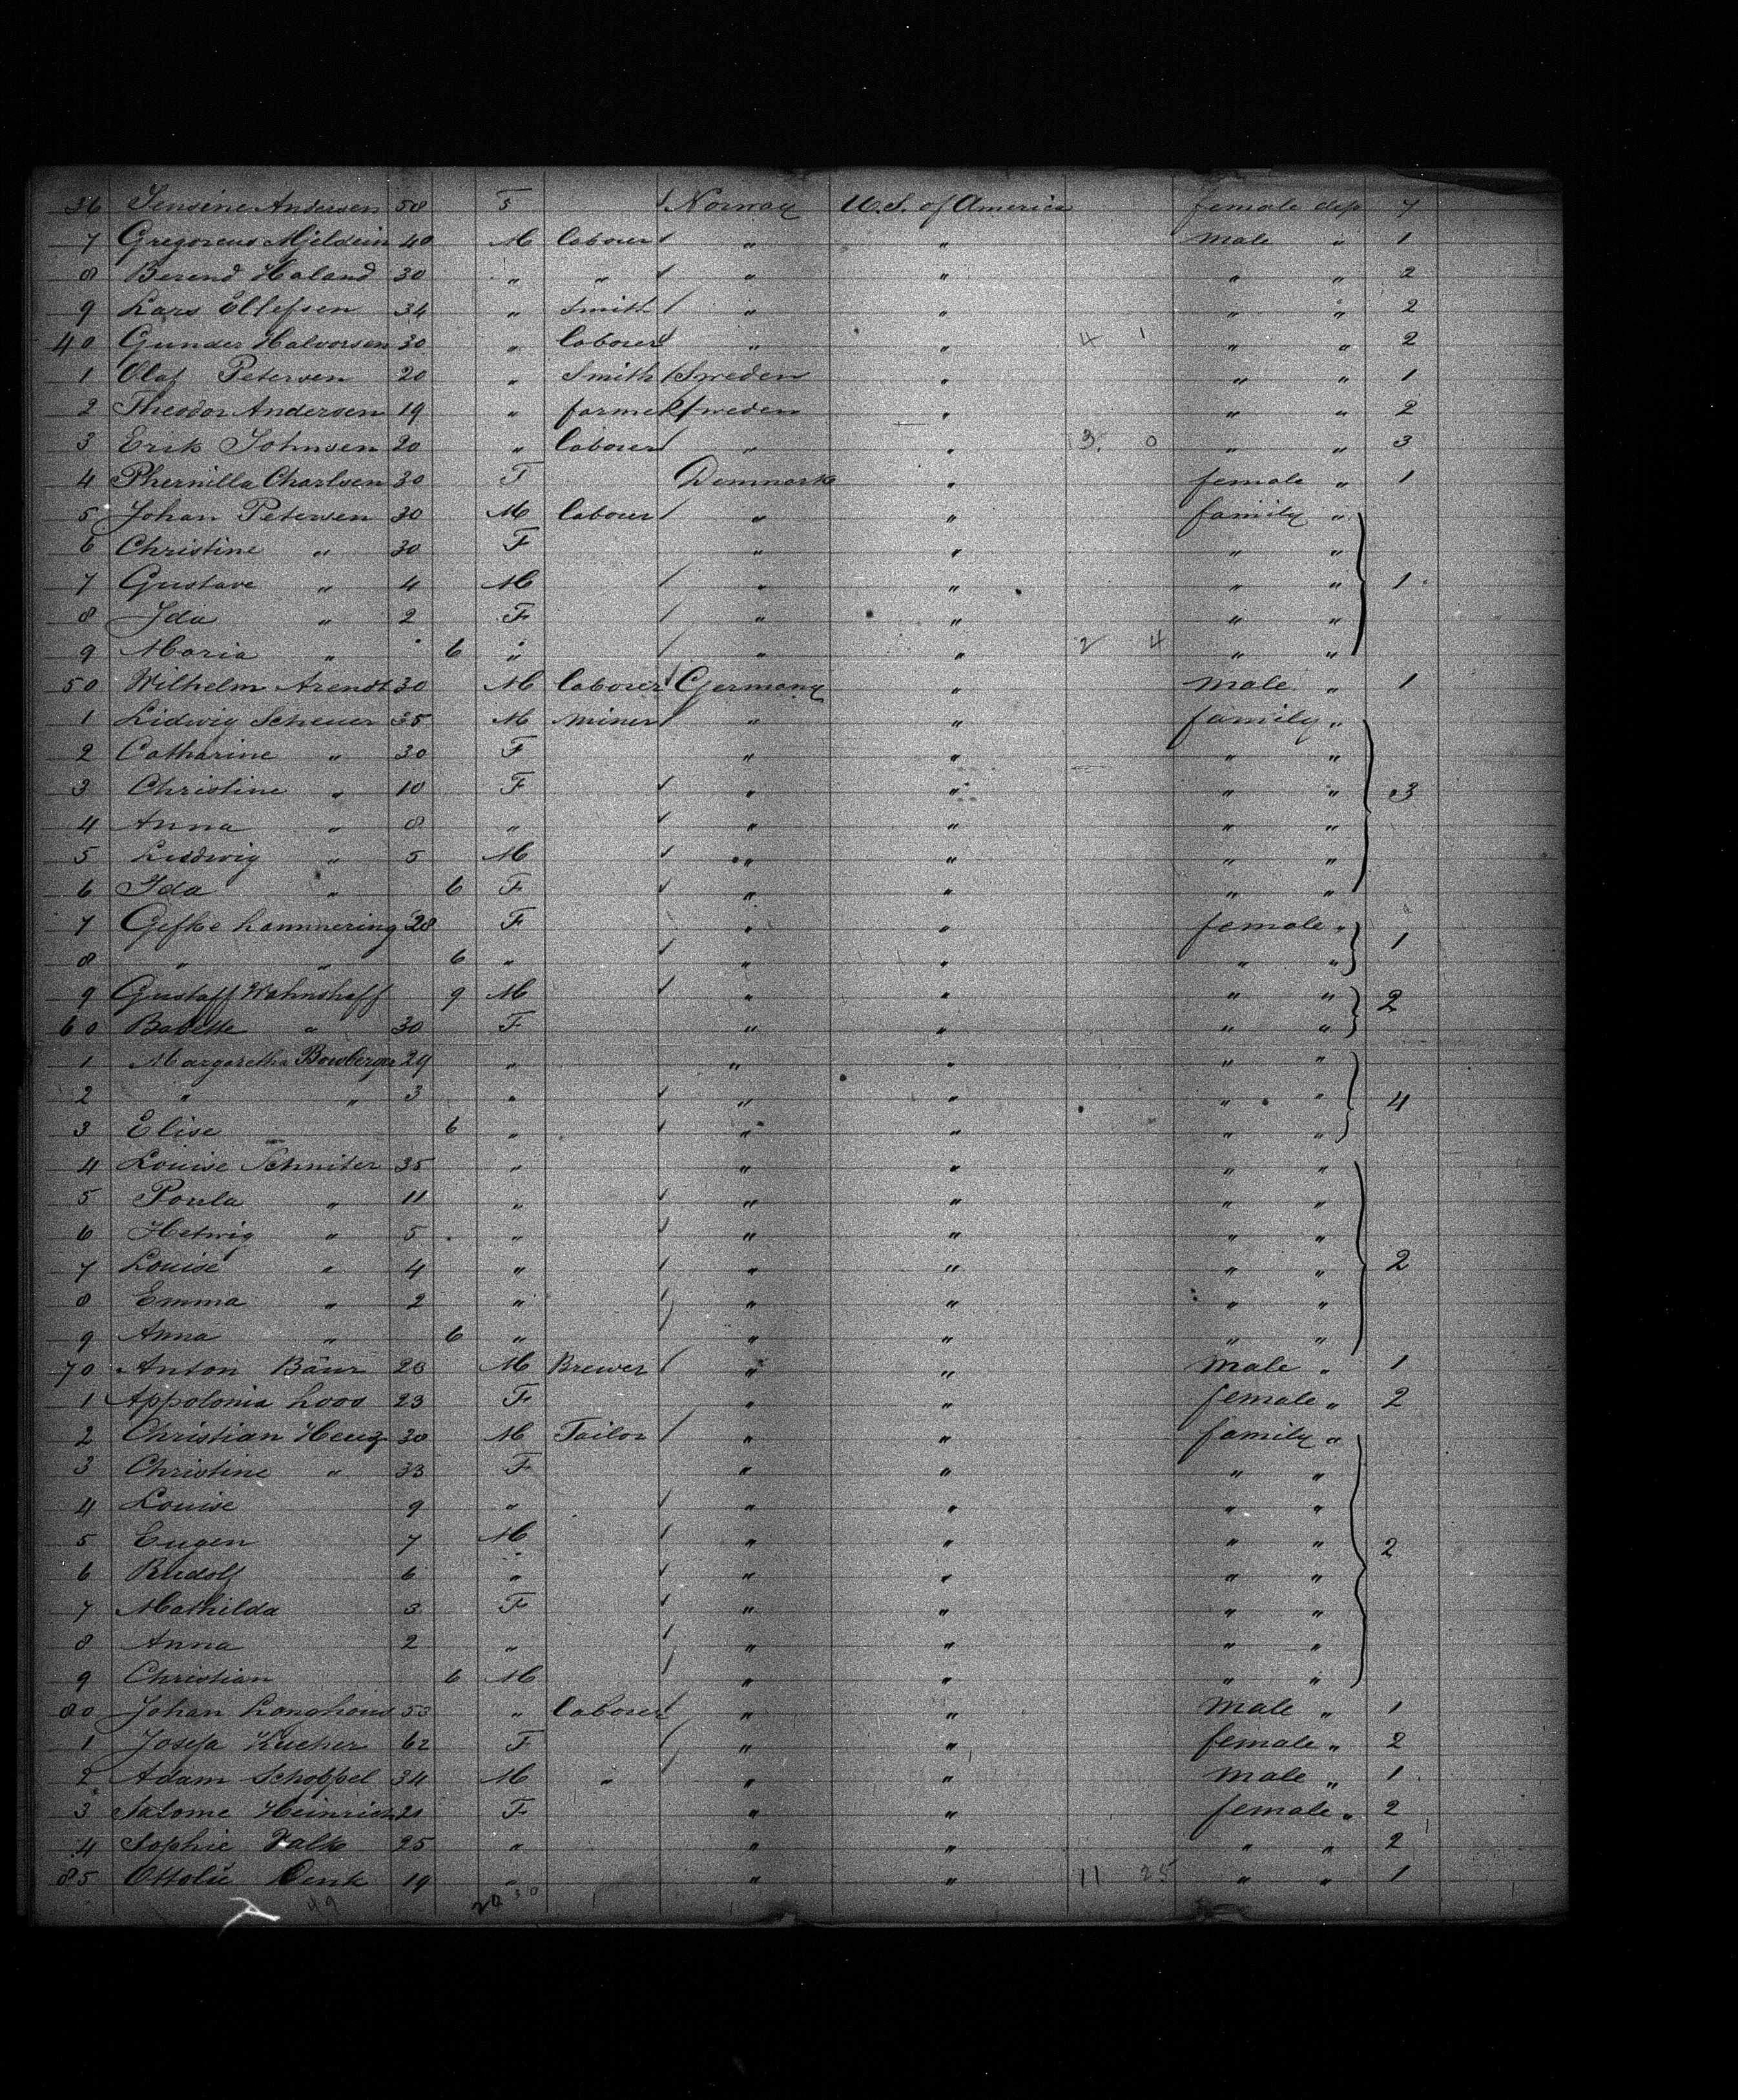 36 Jensine Andersen 58 F Norway U.S. of America female dep 7
7 Gregoreus Mjeldein 40 M laborer " " male " 1
8 Berend Haland 30 " " " " " " 2
9 Lars Ellefsen 34 " Smith " " " " 2
40 Gunder Halvorsen 30 " laborer " " 4 1 " " 2
1 Olaf Petersen 20 " Smith Sweden " " " 1
2 Theodor Andersen 19 " farmer Sweden " " " 2
3 Erik Johnsen 20 " laborer " " 3. 0 " " 3
4 Phernilla Charlsen 30 F Denmark " female " 1
5 Johan Petersen 30 M laborer " " family "
6 Christine " 30 F " " " "
7 Gustave " 4 M " " " " 1
8 Ida " 2 F " " " "
9 Maria " 6 " " " 2 4 " "
50 Wilhelm Arendt 30 M laborer Germany " male " 1
1 Lidwig Scheuer 35 M miner " " family "
2 Catharine " 30 F " " " "
3 Christine " 10 F " " " " 3
4 Anna " 8 " " " " "
5 Ludwig " 5 M " " " "
6 Ida " 6 F " " " "
7 Gefke Lammering 28 F " " female " 1
8 " " 6 " " " " "
9 Gustaff Wahnshaff 9 M " " " " 2
60 Babette " 30 F " " " "
1 Margaretha Bowberger 29 " " " " "
2 " " 3 " " " " " 4
3 Elise 6 " " " " "
4 Louise Schniter 35 " " " " "
5 Poula " 11 " " " " "
6 Hetwig " 5 " " " " "
7 Louise " 4 " " " " " 2
8 Emma " 2 " " " " "
9 Anna " 6 " " " " "
70 Anton Bäur 28 M Brewer " " male " 1
1 Appolonia Loos 23 F " " female " 2
2 Christian Heuz 30 M Tailor " " family "
3 Christine " 33 F " " " "
4 Louise 9 " " " " "
5 Eugen 7 M " " " " 2
6 Rudolf 6 " " " " "
7 Mathilda 3 F " " " "
8 Anna 2 " " " " "
9 Christian 6 M " " " "
80 Johan 53 " laborer " " male " 1
1 Josefa Kucher 62 F " " female " 2
2 Adam Schoppel 34 M " " " male " 1
3 Salome Heinrich 21 F " " female " 2
4 Sophie Falk 25 " " " " " 2
85 Ottolie Denk 19 " " " 11 25 " " 1
49 20 30